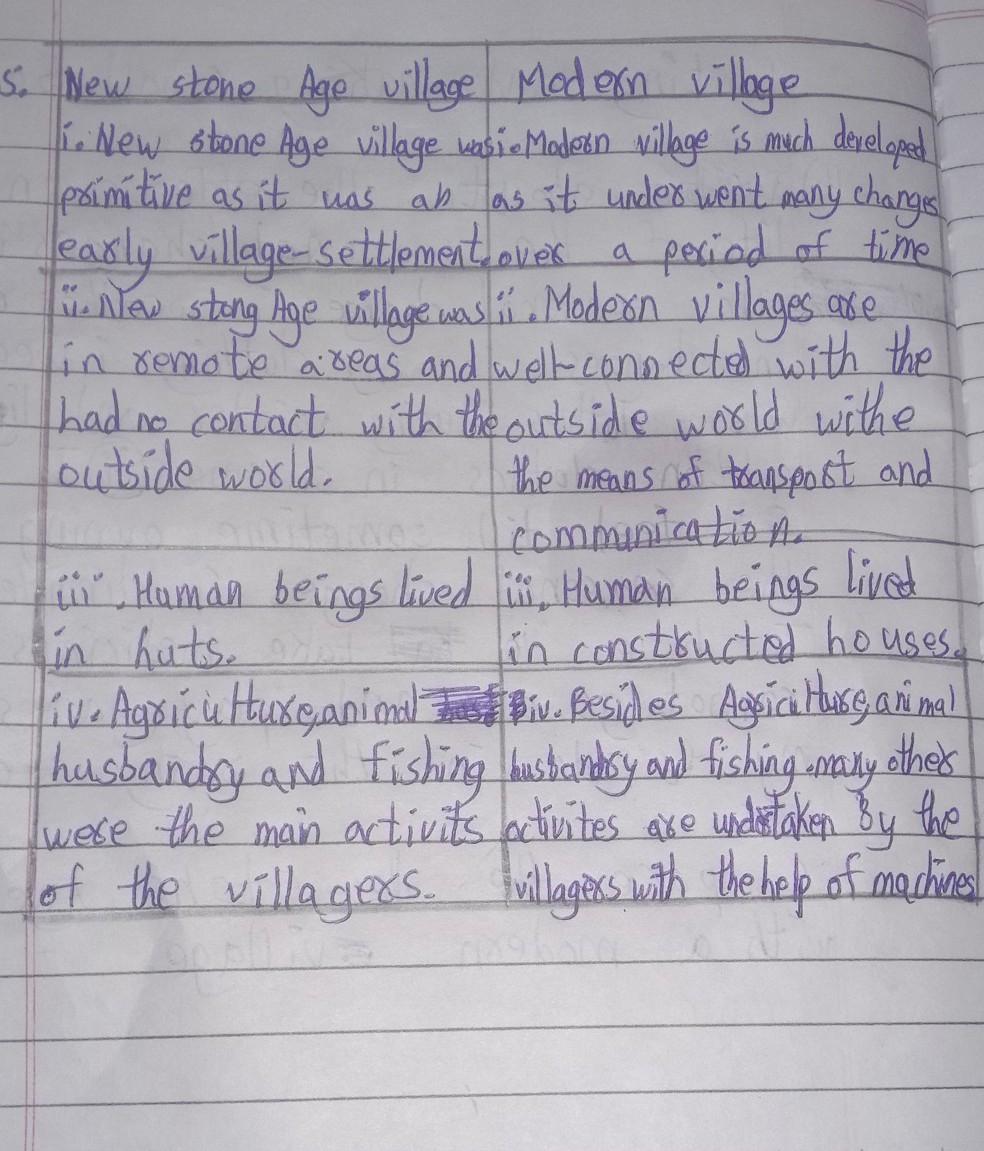 5. New stone Age village | Modern village
i. New stone Age village was | i. Modern village is much developed
primitive as it was an | as it under went many changes
early village-settlement. | over a period of time
ii. New stong Age village was | ii. Modern villages are
in remote areas and | well-connected with the
had no contact with the | outside world withe
outside world. | the means of transport and
communication.
iii. Human beings lived | iii. Human beings lived
in huts. | in constructed houses.
iv. Agriculture, animal | iv. Besides Agriculture, animal
husbandry and fishing | husbandry and fishing many other
were the main activits | activites are undertaken By the
of the villagers. | villagers with the help of machines